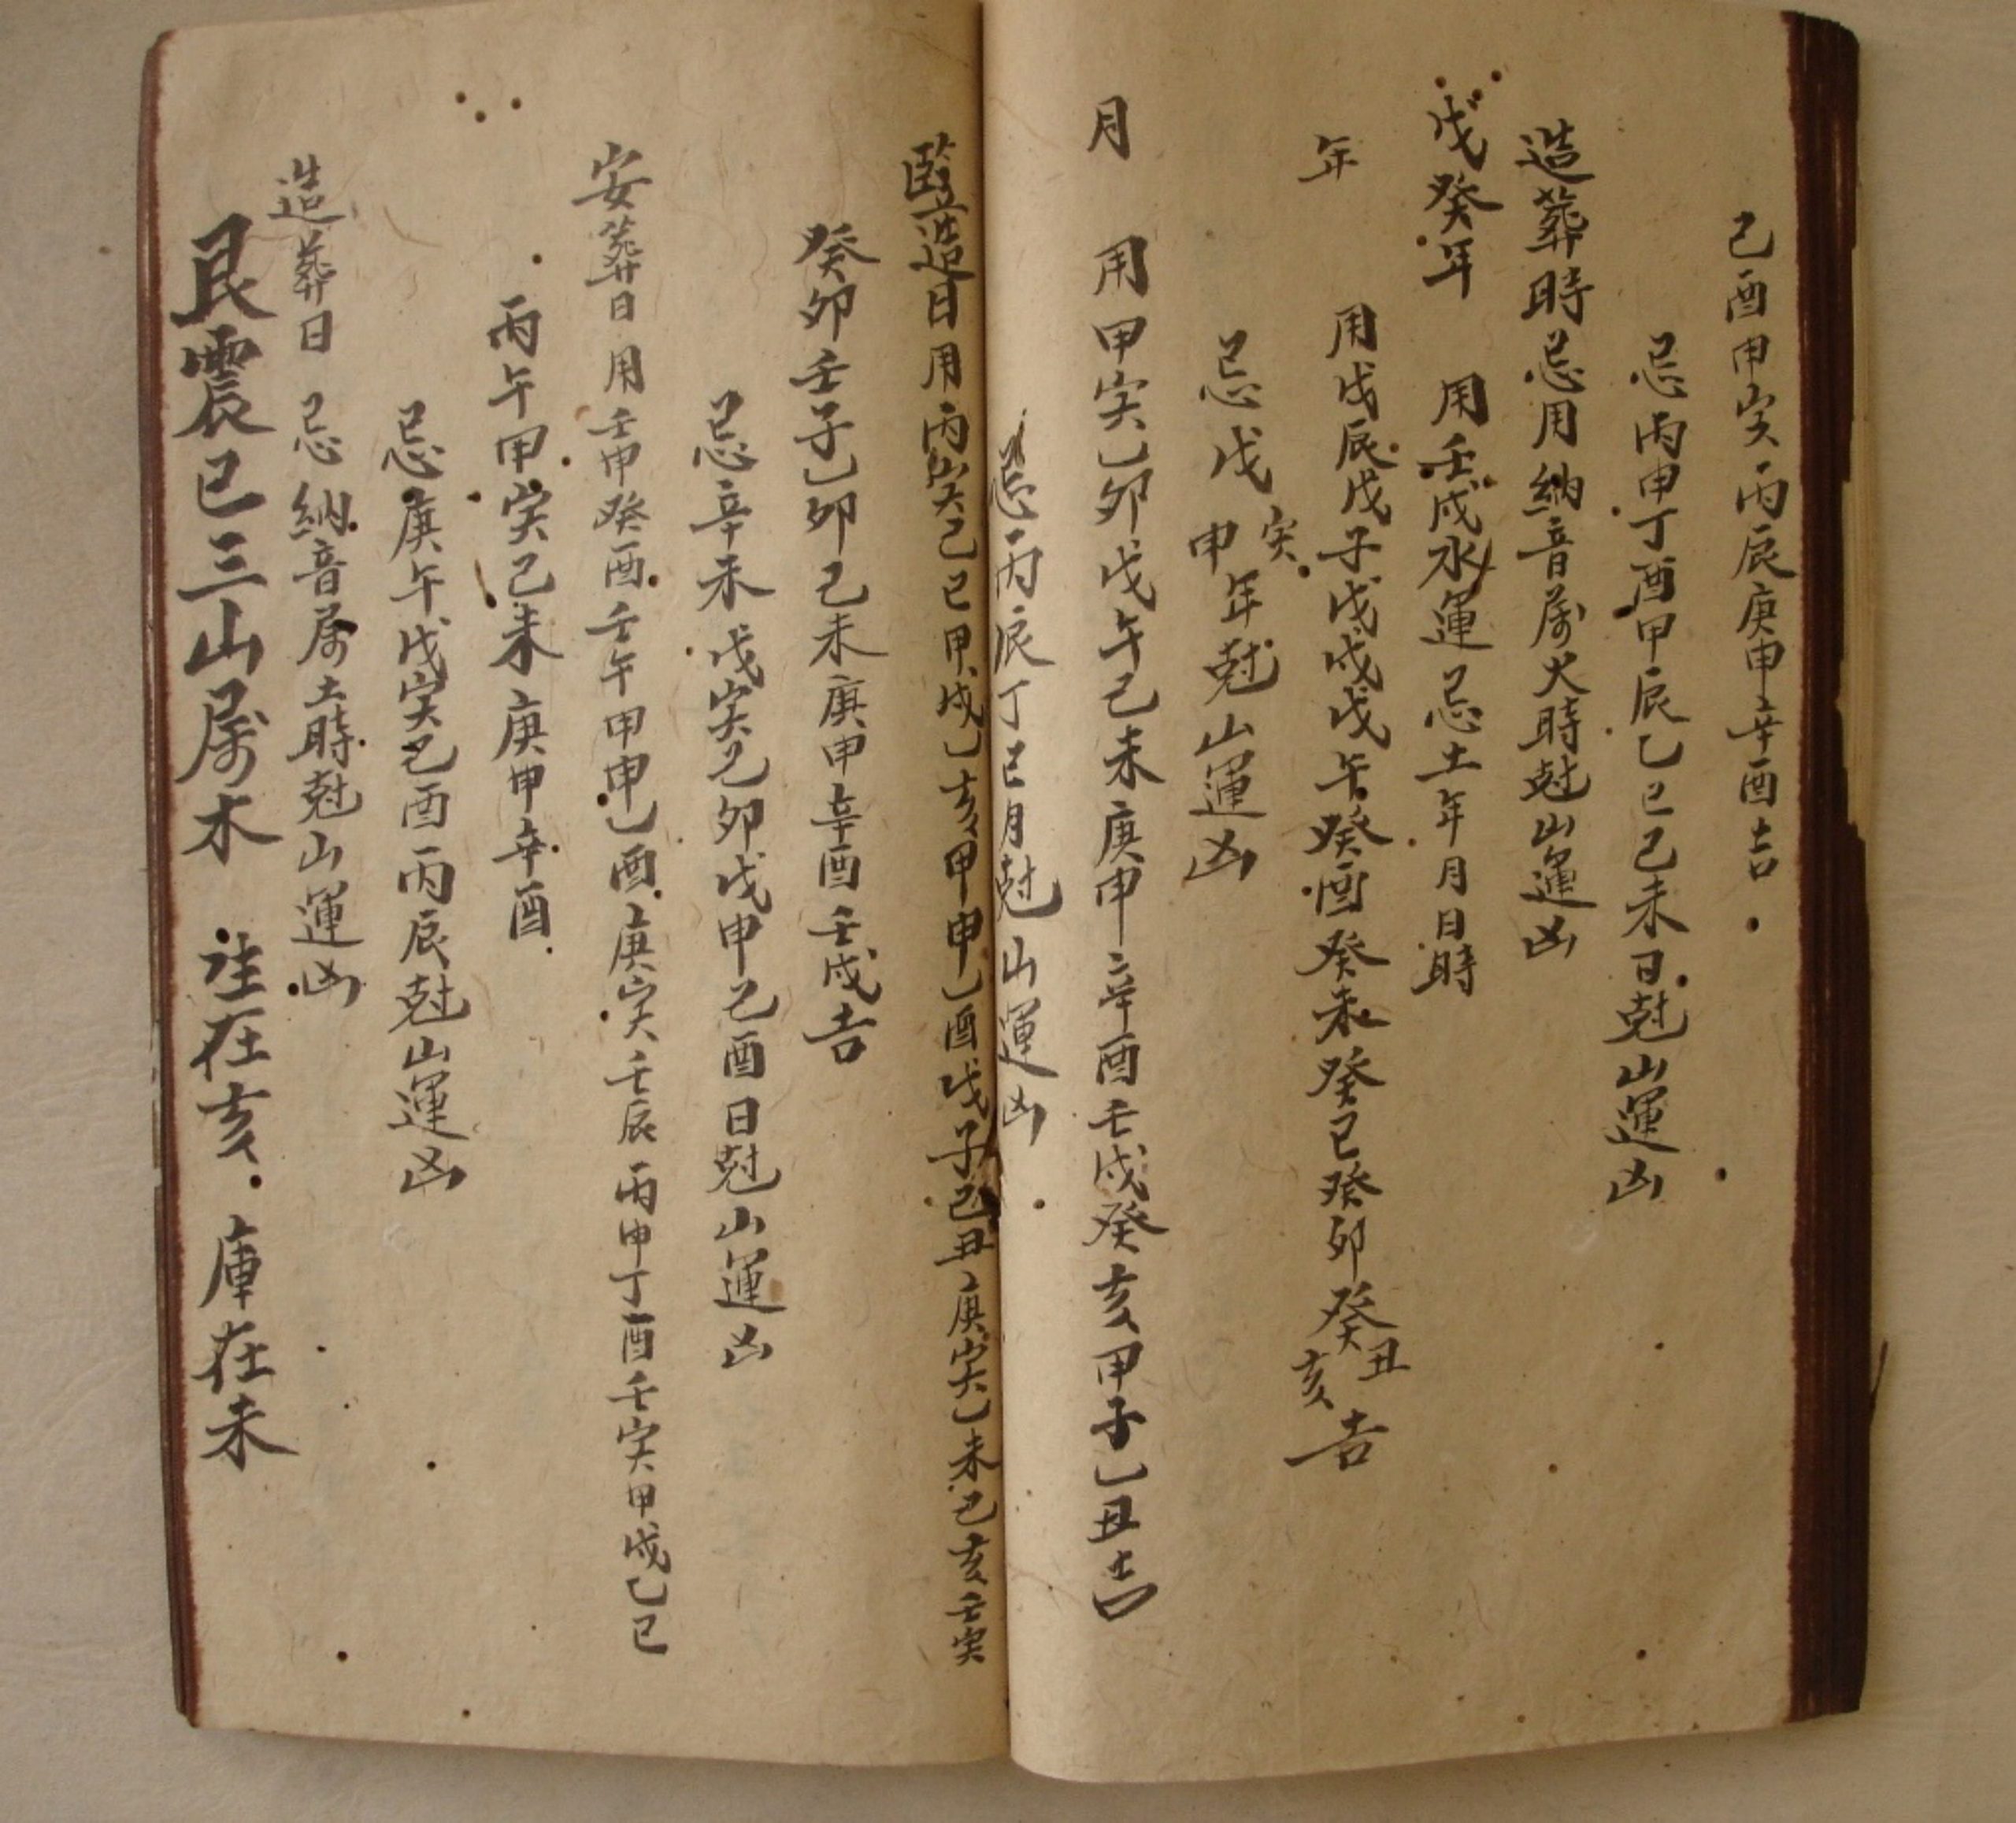 己酉甲寅丙辰庚申辛酉吉
忌丙申丁酉甲辰乙巳己未日尅山運凶
造葬時忌用納音屬火時尅山運凶
戊癸年 用壬戌水運忌土年月日時
年 用戊辰戊子戊戌戊午癸酉癸未癸巳癸卯癸丑亥吉
忌戊寅申年尅山運凶
月 用甲寅乙卯戊午己未庚申辛酉壬戌癸亥甲子乙丑吉
忌丙辰丁巳月尅山運凶
竪造日用丙寅己巳甲戌乙亥甲申乙酉戊子己丑庚寅乙未己亥壬寅
癸卯壬子乙卯己未庚申辛酉壬戌吉
忌辛未戊寅己卯戊申己酉日尅山運凶
安葬日用壬申癸酉壬午甲申乙酉庚寅壬辰丙申丁酉壬寅甲戌乙巳
丙午甲寅己未庚申辛酉
忌庚午戊寅己酉丙辰尅山運凶
造葬日忌納音屬土時尅山運凶
艮震巳三山屬木 注在亥 庫在未